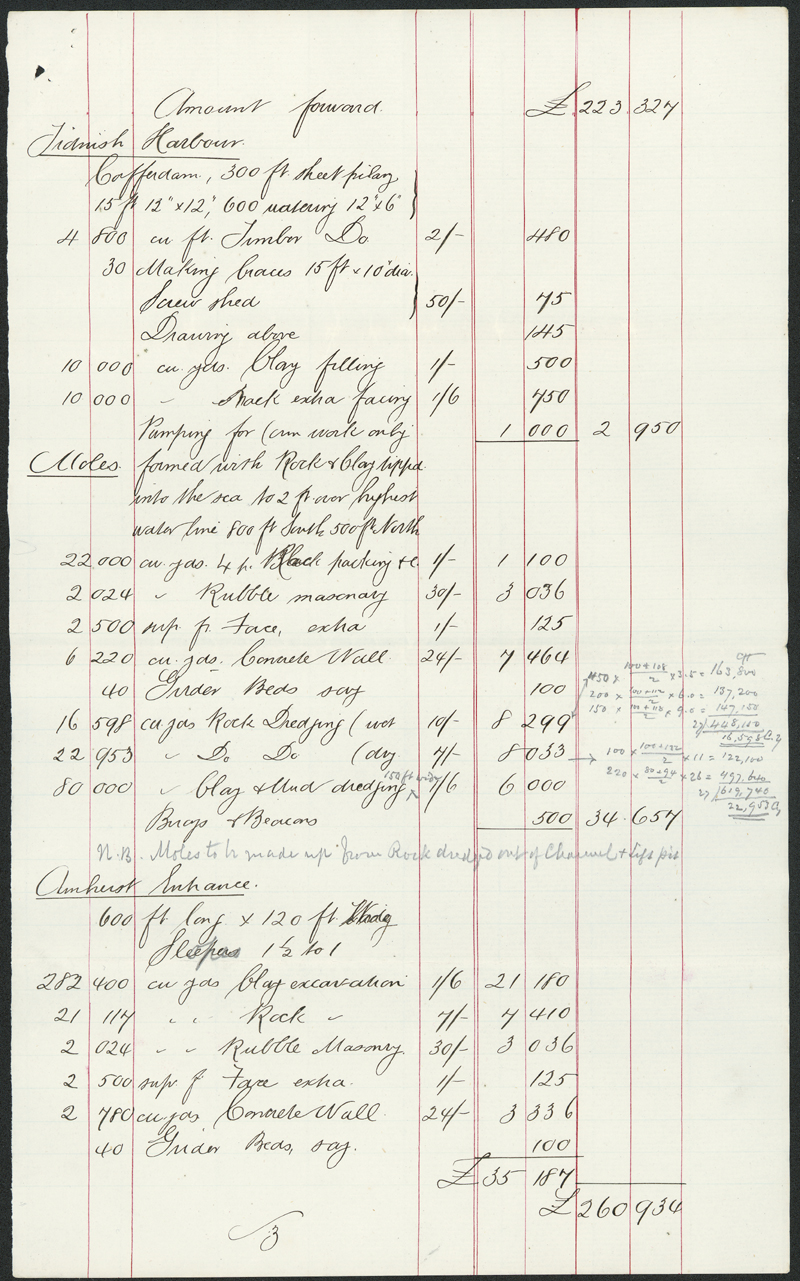 Amount forward £ 223 327
Tidnish Harbour.
Cofferdam, 300 ft sheet piling
15 ft 12" x 12", 600 12" x 6"
4 800 cu ft. Timber Do 2/- 480
30 Making braces 15 ft x 10" dia.
Screw shed 50/- 75
Drawing above 145
10 000 cu. yds. Clay filling 1/- 500
10 000 " extra facing 1/6 750
Pumping for work only 1 000 2 950
Moles. formed with Rock & Clay tipped
into the sea to 2 ft over highest
water line 800 ft South, 500 ft North
22 000 cu. yds. packing &c. 1/- 1 100
2 024 " Rubble masonry 30/- 3 036
2 500 sup. ft. Face, extra 1/- 125
6 220 cu. yds. Concrete Wall 24/- 7 464
40 Girder Beds say 100
16 598 cu yds Rock Dredging (wet 10/- 8 299
22 953 " Do Do (dry 7/- 8 033
80 000 " Clay & Mud dredging 150 ft wide 1/6 6 000
Buoys & Beacons 500 34 657
450 x 100+108/2 x 3.5 = 163,800
200 x 100+112/2 x 6.0 = 137,200
150 x 9.0 = 147,150
27) 448,150
16,598 C. y
100 x x 11 = 122,100
220 x 80+94/2 x 26 = 497,640
27) 619,740
22,953 Cy
N.B. Moles to be made up from Rock dredged out of Channel & Lift pit
Amherst Entrance.
600 ft long x 120 ft
1½ to 1
282 400 cu yds Clay excavation 1/6 21 180
21 117 " " Rock " 7/- 7 410
2 024 " " Rubble Masonry 30/- 3 036
2 500 sup f Face extra. 1/- 125
2 780 cu yds Concrete Wall 24/- 3 336
40 Girder Beds, say. 100
£ 35 187
£ 260 934
3